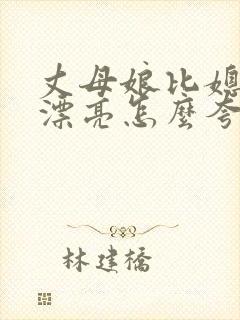 丈母娘比媳
漂亮怎麼夸
林建橋